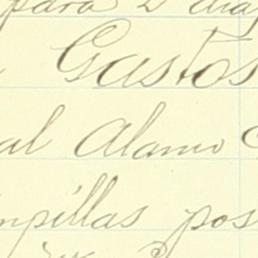 para 2 dias
Gastos
al Alamo
mpillas pos